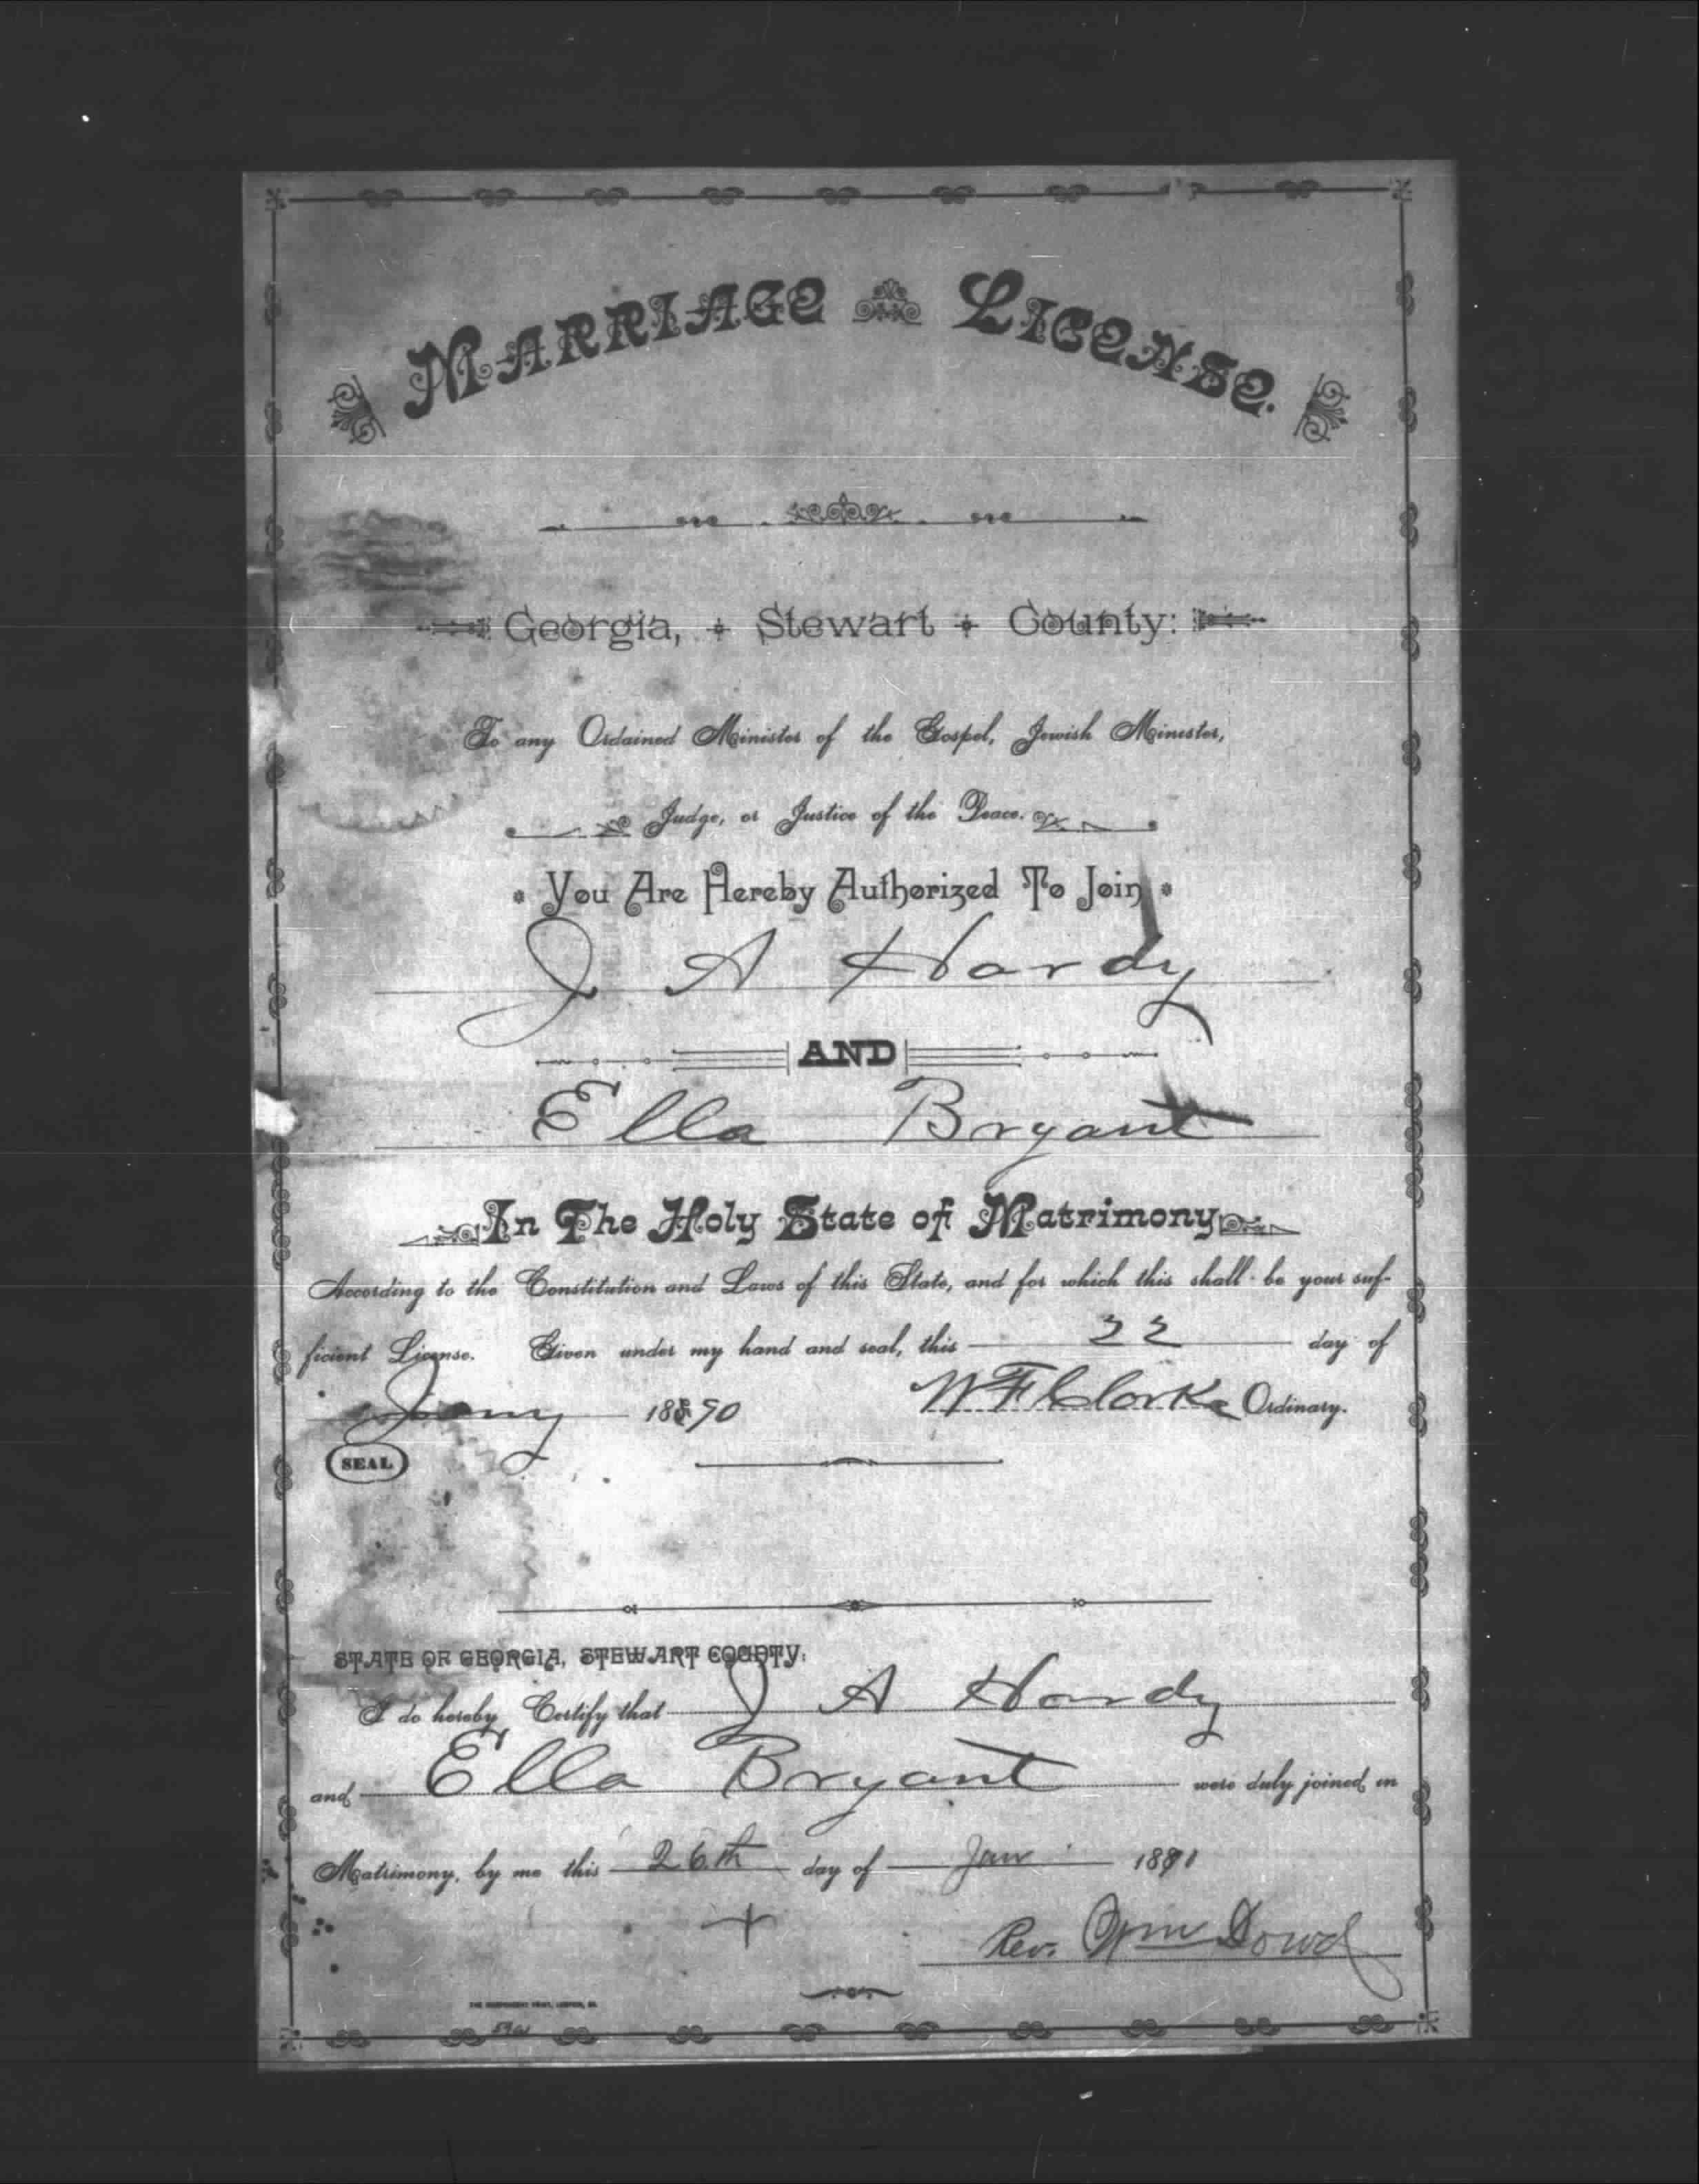 MARRIAGE LICENSE.
Georgia, Stewart County:
To any Ordained Minister of the Gospel, Jewish Minister,
Judge, or Justice of the Peace.
You Are Hereby Authorized To Join
J A Hardy
AND
Ella Bryant
In The Holy State of Matrimony
According to the Constitution and Laws of this State, and for which this shall be your suf-
ficient License. Given under my hand and seal, this 22 day of
Jany 18890 W F Clarke Ordinary.
SEAL
STATE OF GEORGIA, STEWART COUNTY:
I do hereby Certify that J A Hardy
and Ella Bryant were duly joined in
Matrimony, by me this 26th day of Jan 1891
Rev. Wm Dowd